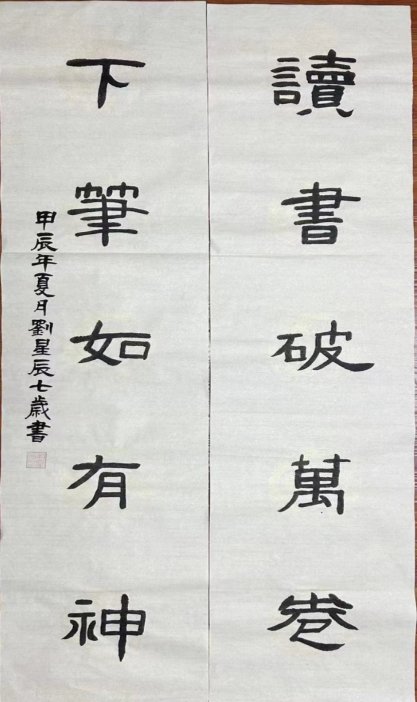 讀書破萬卷
下筆如有神
甲辰年夏月劉星辰七歲書